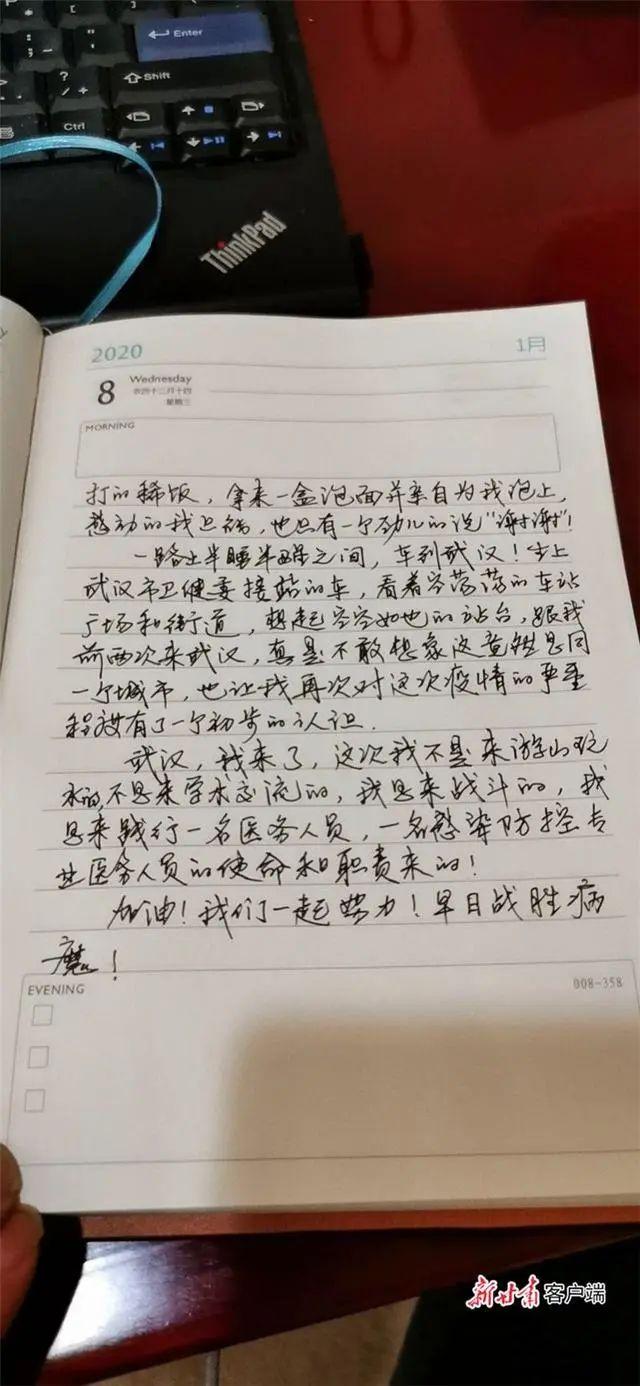 Enter
Shift
Ctrl
ThinkPad
2020
1月
8
Wednesday
农历十二月十四
星期三
MORNING
打的稀饭，拿来一盒泡面并亲自为我泡上，
感动的我，也只有一个劲儿的说“谢谢”！
一路上半睡半醒之间，车到武汉！坐上
武汉市卫健委接站的车，看着空荡荡的车站
广场和街道，想起空空如也的站台，跟我
前两次来武汉，真是不敢想象这竟然是同
一个城市，也让我再次对这次疫情的严重
程度有了一个初步的认识.
武汉，我来了，这次我不是来游山玩
水的，不是来学术交流的，我是来战斗的，我
是来践行一名医务人员，一名感染防控专
业医务人员的使命和职责来的！
加油！我们一起努力！早日战胜病
魔！
EVENING
008-358
新甘肃客户端